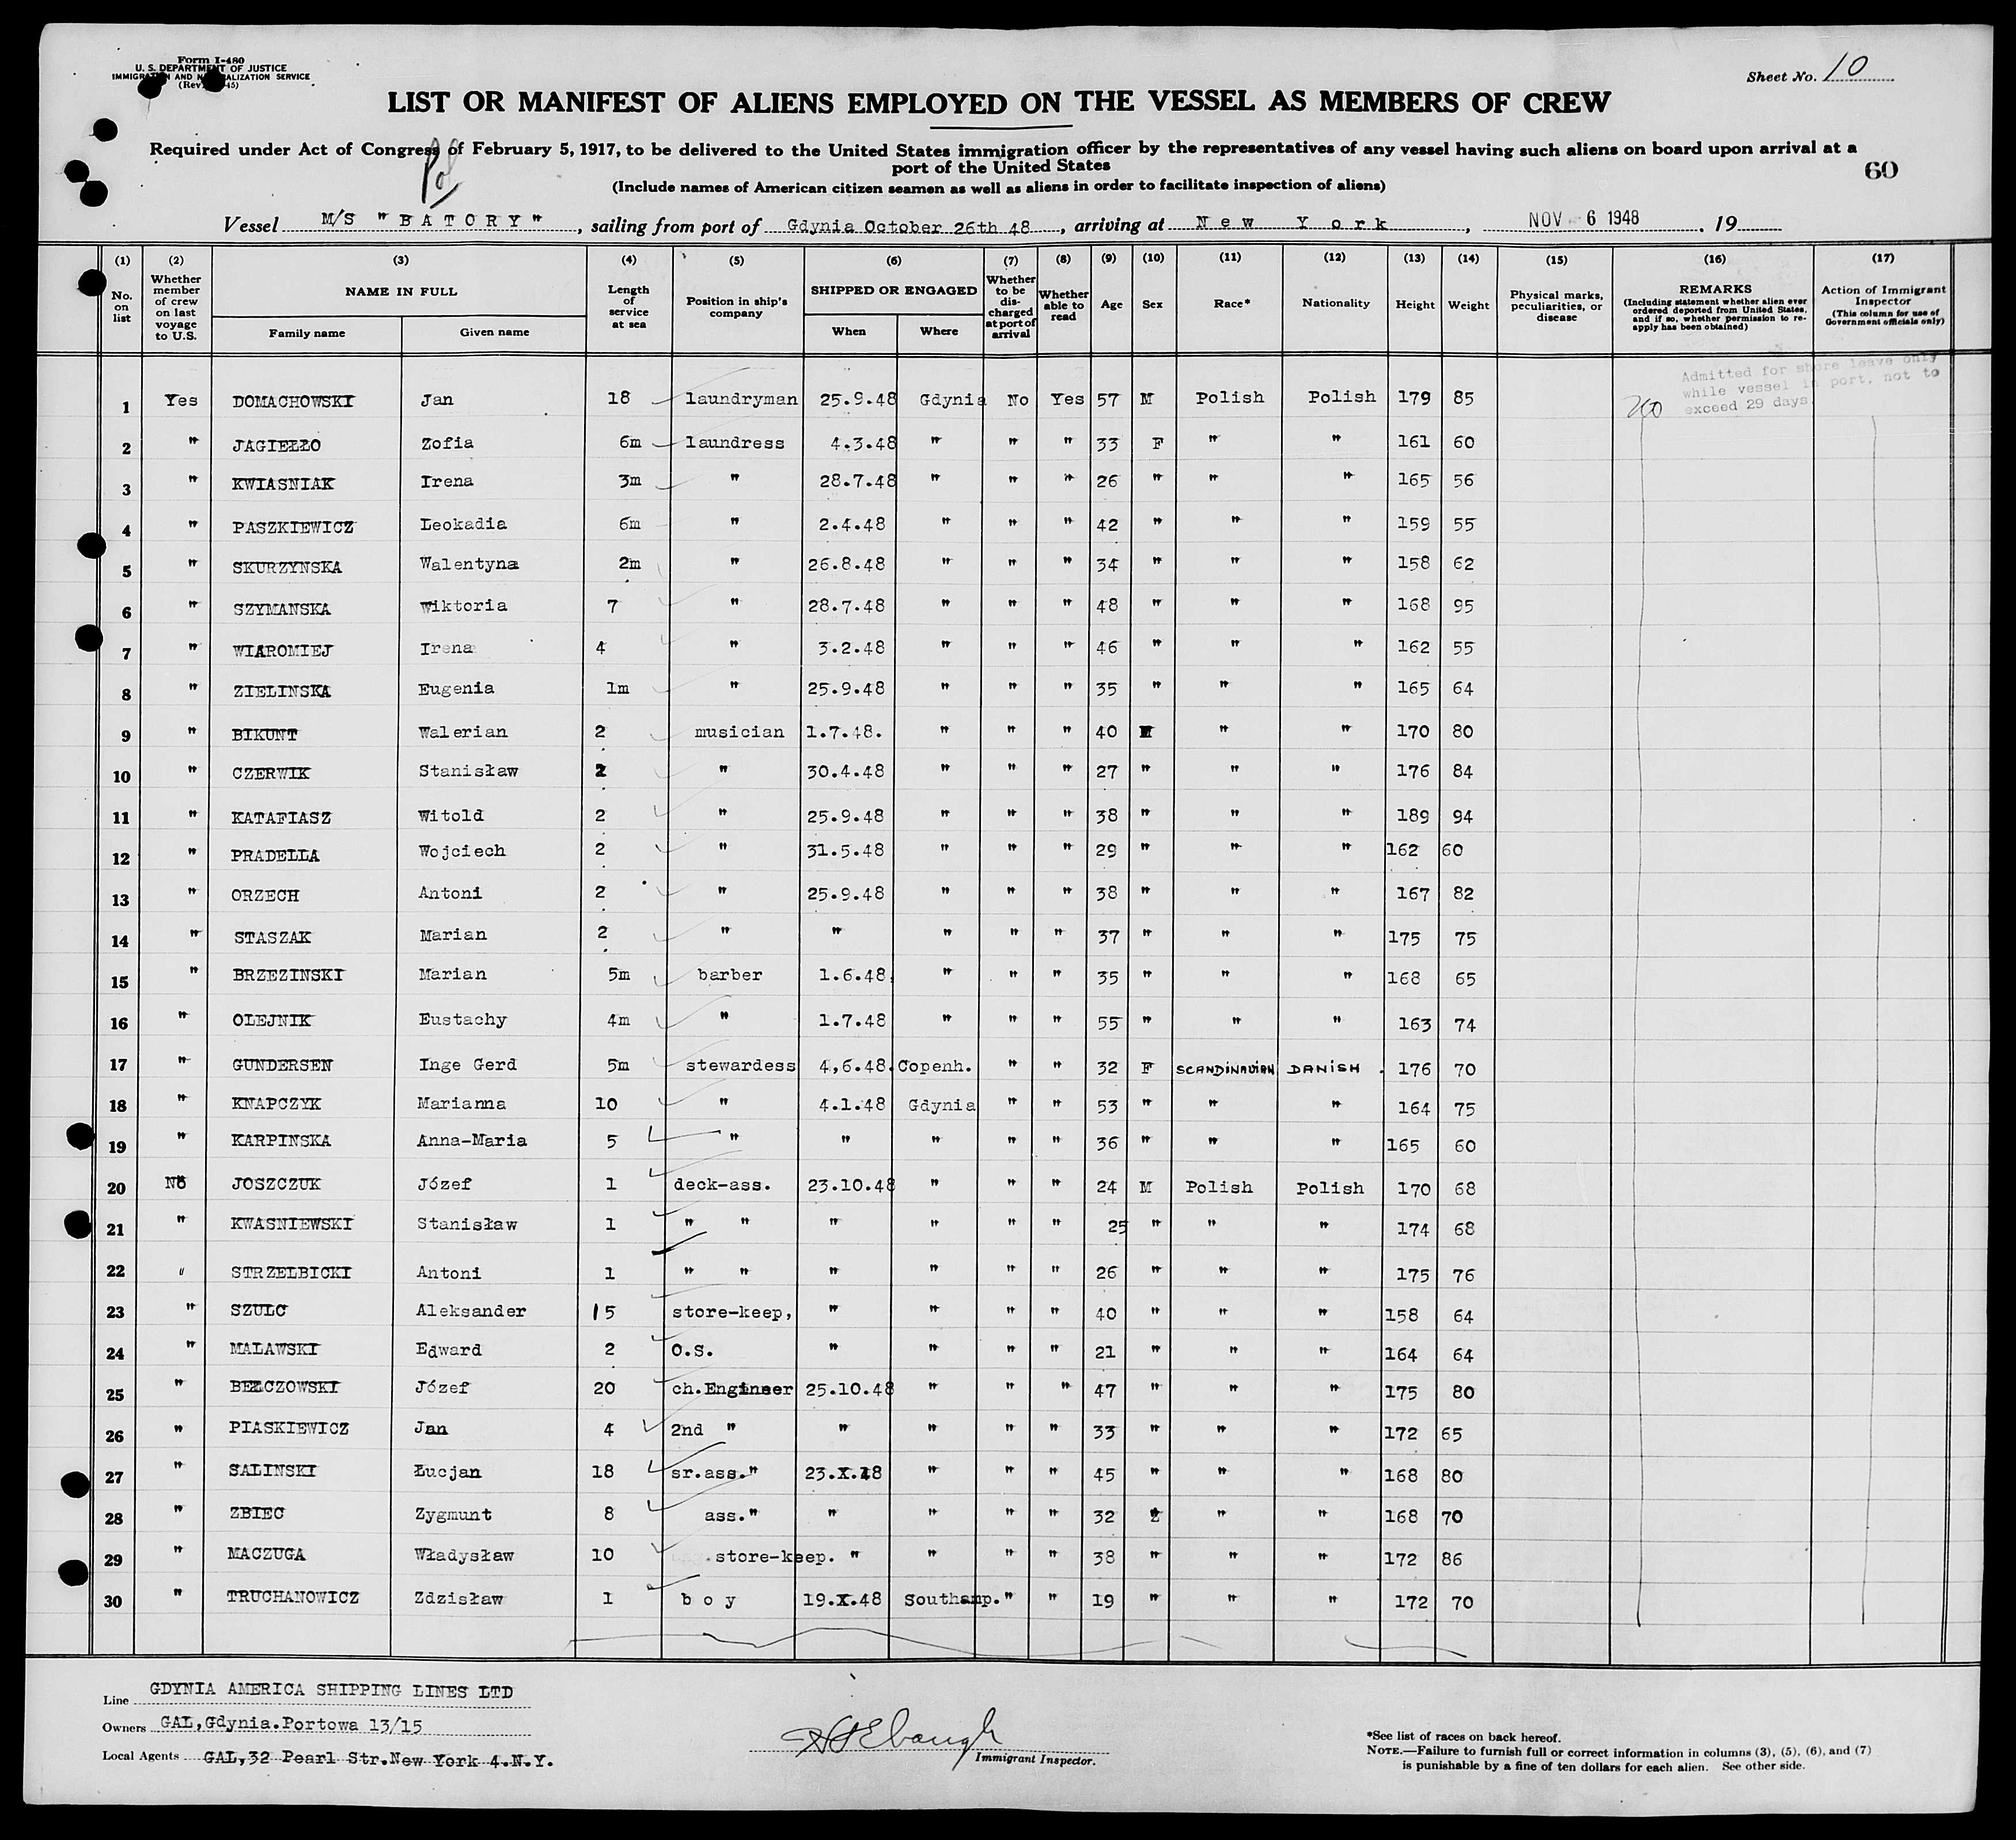 Form I-480
U. S. DEPARTMENT OF JUSTICE
IMMIGRATION AND NATURALIZATION SERVICE
(Rev. 45)
Sheet No. 10
LIST OR MANIFEST OF ALIENS EMPLOYED ON THE VESSEL AS MEMBERS OF CREW
Required under Act of Congress of February 5, 1917, to be delivered to the United States immigration officer by the representatives of any vessel having such aliens on board upon arrival at a
port of the United States
Pol
60
(Include names of American citizen seamen as well as aliens in order to facilitate inspection of aliens)
Vessel M/S "BATORY", sailing from port of Gdynia October 26th 48, arriving at New York, NOV 6 1948. 19
(1) (2) (3) (4) (5) (6) (7) (8) (9) (10) (11) (12) (13) (14) (15) (16) (17)
No. on list
Whether member of crew on last voyage to U.S.
NAME IN FULL
Family name
Given name
Length of service at sea
Position in ship's company
SHIPPED OR ENGAGED
When
Where
Whether to be discharged at port of arrival
Whether able to read
Age
Sex
Race*
Nationality
Height
Weight
Physical marks, peculiarities, or disease
REMARKS
(Including statement whether alien ever ordered deported from United States, and if so, whether permission to re-apply has been obtained)
Action of Immigrant Inspector
(This column for use of Government officials only)
Admitted for shore leave only
while vessel in port, not to
exceed 29 days.
1 Yes DOMACHOWSKI Jan 18 laundryman 25.9.48 Gdynia No Yes 57 M Polish Polish 179 85
2 " JAGIEŁŁO Zofia 6m laundress 4.3.48 " " " 33 F " " 161 60
3 " KWIASNIAK Irena 3m " 28.7.48 " " " 26 " " " 165 56
4 " PASZKIEWICZ Leokadia 6m " 2.4.48 " " " 42 " " " 159 55
5 " SKURZYNSKA Walentyna 2m " 26.8.48 " " " 34 " " " 158 62
6 " SZYMANSKA Wiktoria 7 " 28.7.48 " " " 48 " " " 168 95
7 " WIAROMIEJ Irena 4 " 3.2.48 " " " 46 " " " 162 55
8 " ZIELINSKA Eugenia 1m " 25.9.48 " " " 35 " " " 165 64
9 " BIKUNT Walerian 2 musician 1.7.48. " " " 40 M " " 170 80
10 " CZERWIK Stanisław 2 " 30.4.48 " " " 27 " " " 176 84
11 " KATAFIASZ Witold 2 " 25.9.48 " " " 38 " " " 189 94
12 " PRADELLA Wojciech 2 " 31.5.48 " " " 29 " " " 162 60
13 " ORZECH Antoni 2 " 25.9.48 " " " 38 " " " 167 82
14 " STASZAK Marian 2 " " " " " 37 " " " 175 75
15 " BRZEZINSKI Marian 5m barber 1.6.48. " " " 35 " " " 168 65
16 " OLEJNIK Eustachy 4m " 1.7.48 " " " 55 " " " 163 74
17 " GUNDERSEN Inge Gerd 5m stewardess 4,6.48. Copenh. " " 32 F SCANDINAVIAN DANISH. 176 70
18 " KNAPCZYK Marianna 10 " 4.1.48 Gdynia " " 53 " " " 164 75
19 " KARPINSKA Anna-Maria 5 " " " " " 36 " " " 165 60
20 No JOSZCZUK Józef 1 deck-ass. 23.10.48 " " " 24 M Polish Polish 170 68
21 " KWASNIEWSKI Stanisław 1 " " " " " " 25 " " " 174 68
22 " STRZELBICKI Antoni 1 " " " " " " 26 " " " 175 76
23 " SZULC Aleksander 15 store-keep, " " " " 40 " " " 158 64
24 " MALAWSKI Edward 2 O.S. " " " " 21 " " " 164 64
25 " BEŁCZOWSKI Józef 20 ch.Engineer 25.10.48 " " " 47 " " " 175 80
26 " PIASKIEWICZ Jan 4 2nd " " " " " 33 " " " 172 65
27 " SALINSKI Łucjan 18 sr.ass." 23.X.48 " " " 45 " " " 168 80
28 " ZBIEC Zygmunt 8 ass." " " " " 32 " " " 168 70
29 " MACZUGA Władysław 10 store-keep. " " " " 38 " " " 172 86
30 " TRUCHANOWICZ Zdzisław 1 boy 19.X.48 Southamp. " " 19 " " " 172 70
Line GDYNIA AMERICA SHIPPING LINES LTD
Owners GAL,Gdynia.Portowa 13/15
Local Agents GAL,32 Pearl Str.New York 4.N.Y.
Immigrant Inspector.
*See list of races on back hereof.
NOTE.—Failure to furnish full or correct information in columns (3), (5), (6), and (7)
is punishable by a fine of ten dollars for each alien. See other side.